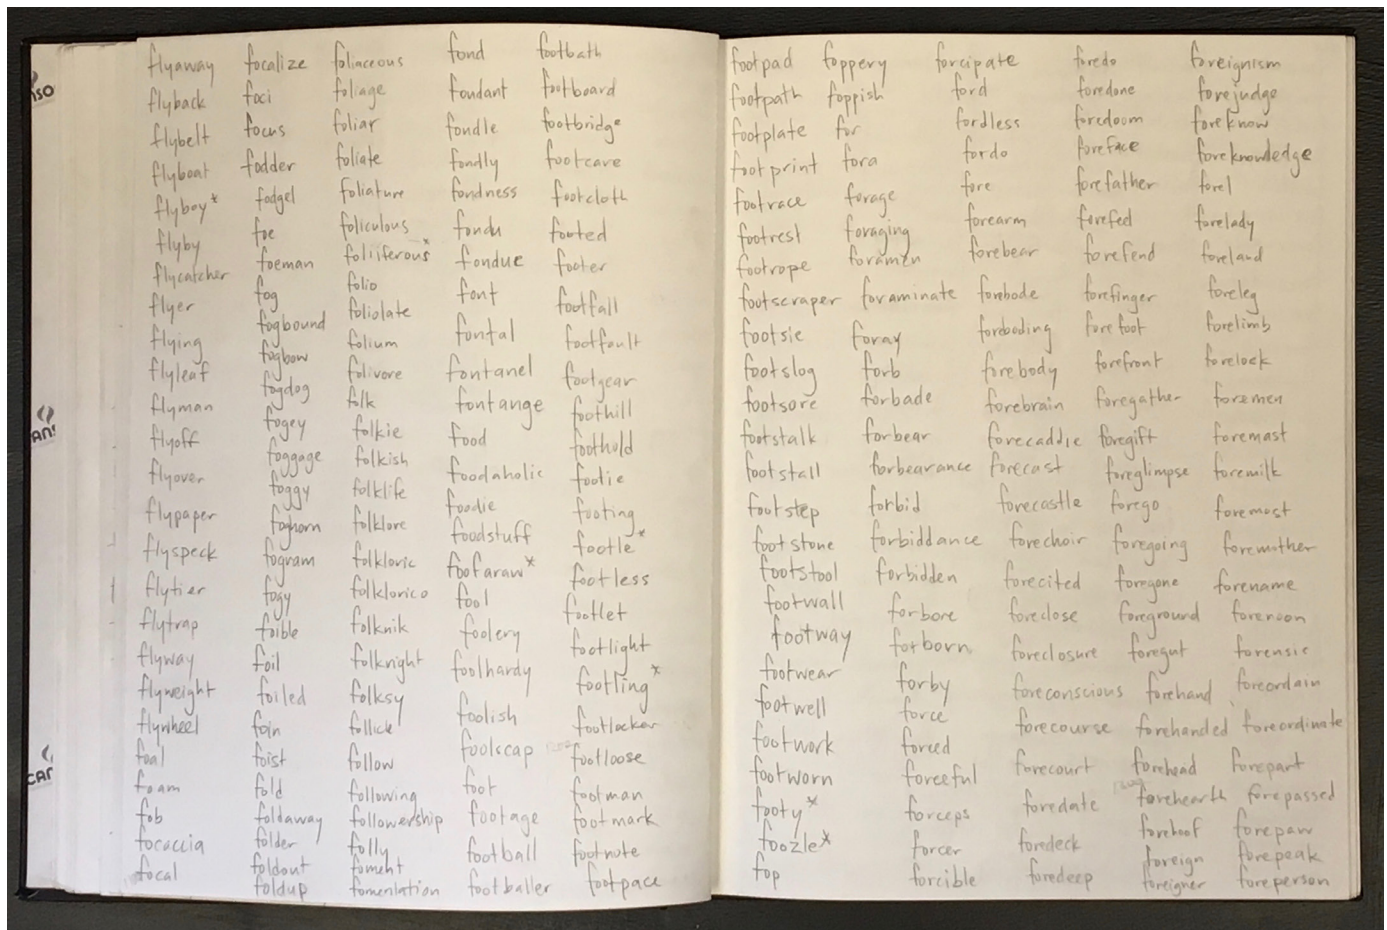 flyaway
flyback
flybelt
flyboat
flyboy*
flyby
flycatcher
flyer
flying
flyleaf
flyman
flyoff
flyover
flypaper
flyspeck
flytier
flytrap
flyway
flyweight
flywheel
foal
foam
fob
focaccia
focal
focalize
foci
focus
fodder
fodgel
foe
foeman
fog
fogbound
fogbow
fogdog
fogey
foggage
foggy
foghorn
fogram
fogy
foible
foil
foiled
foin
foist
fold
foldaway
folder
foldout
foldup
foliaceous
foliage
foliar
foliate
foliature
foliculous
foliiferous*
folio
foliolate
folium
folivore
folk
folkie
folkish
folklife
folklore
folkloric
folklorico
folknik
folknight
folksy
follick
follow
following
followership
folly
foment
fomentation
fond
fondant
fondle
fondly
fondness
fondu
fondue
font
fontal
fontanel
fontange
food
foodaholic
foodie
foodstuff
foofaraw*
fool
foolery
foolhardy
foolish
foolscap
foot
footage
football
footballer
footbath
footboard
footbridge
footcave
footcloth
footed
footer
footfall
footfault
footgear
foothill
foothold
footie
footing
footle*
footless
footlet
footlight
footling*
footlocker
footloose
footman
footmark
footnote
footpace
footpad
footpath
footplate
footprint
footrace
footrest
footrope
footscraper
footsie
footslog
footsore
footstalk
footstall
footstep
footstone
footstool
footwall
footway
footwear
footwell
footwork
footworn
footy*
foozle*
fop
foppery
foppish
for
fora
forage
foraging
foramen
foraminate
foray
forb
forbade
forbear
forbearance
forbid
forbiddance
forbidden
forbore
forborn
forby
force
forced
forceful
forceps
forcer
forcible
forcipate
ford
fordless
fordo
fore
forearm
forebear
forebode
foreboding
forebody
forebrain
forecaddie
forecast
forecastle
forechoir
forecited
foreclose
foreclosure
foreconscious
forecourse
forecourt
foredate
foredeck
foredeep
foredo
foredone
foredoom
foreface
forefather
forefeel
forefend
forefinger
forefoot
forefront
foregather
foregift
foreglimpse
forego
foregoing
foregone
foreground
foregut
forehand
forehanded
forehead
forehearth
forehoof
foreign
foreigner
foreignism
forejudge
foreknow
foreknowledge
forel
forelady
foreland
foreleg
forelimb
forelock
foremen
foremast
foremilk
foremost
foremother
forename
forenoon
forensic
foreordain
foreordinate
forepart
forepassed
forepaw
forepeak
foreperson